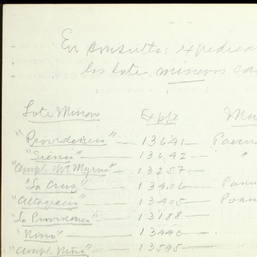 En consulta: expedien
los lotes mineros co
Lote Minero Expte Mu
"Providencia" — 13641 —
"Irene" — 13642 — "
"Ampl. Myrna" — 13257 —
"La Cruz" — 13406 —
"Altagracia" — 13405 —
"La Providencia" — 13118 —
"Nina" — 13440 —
"Ampl. Nina" — 13595 —